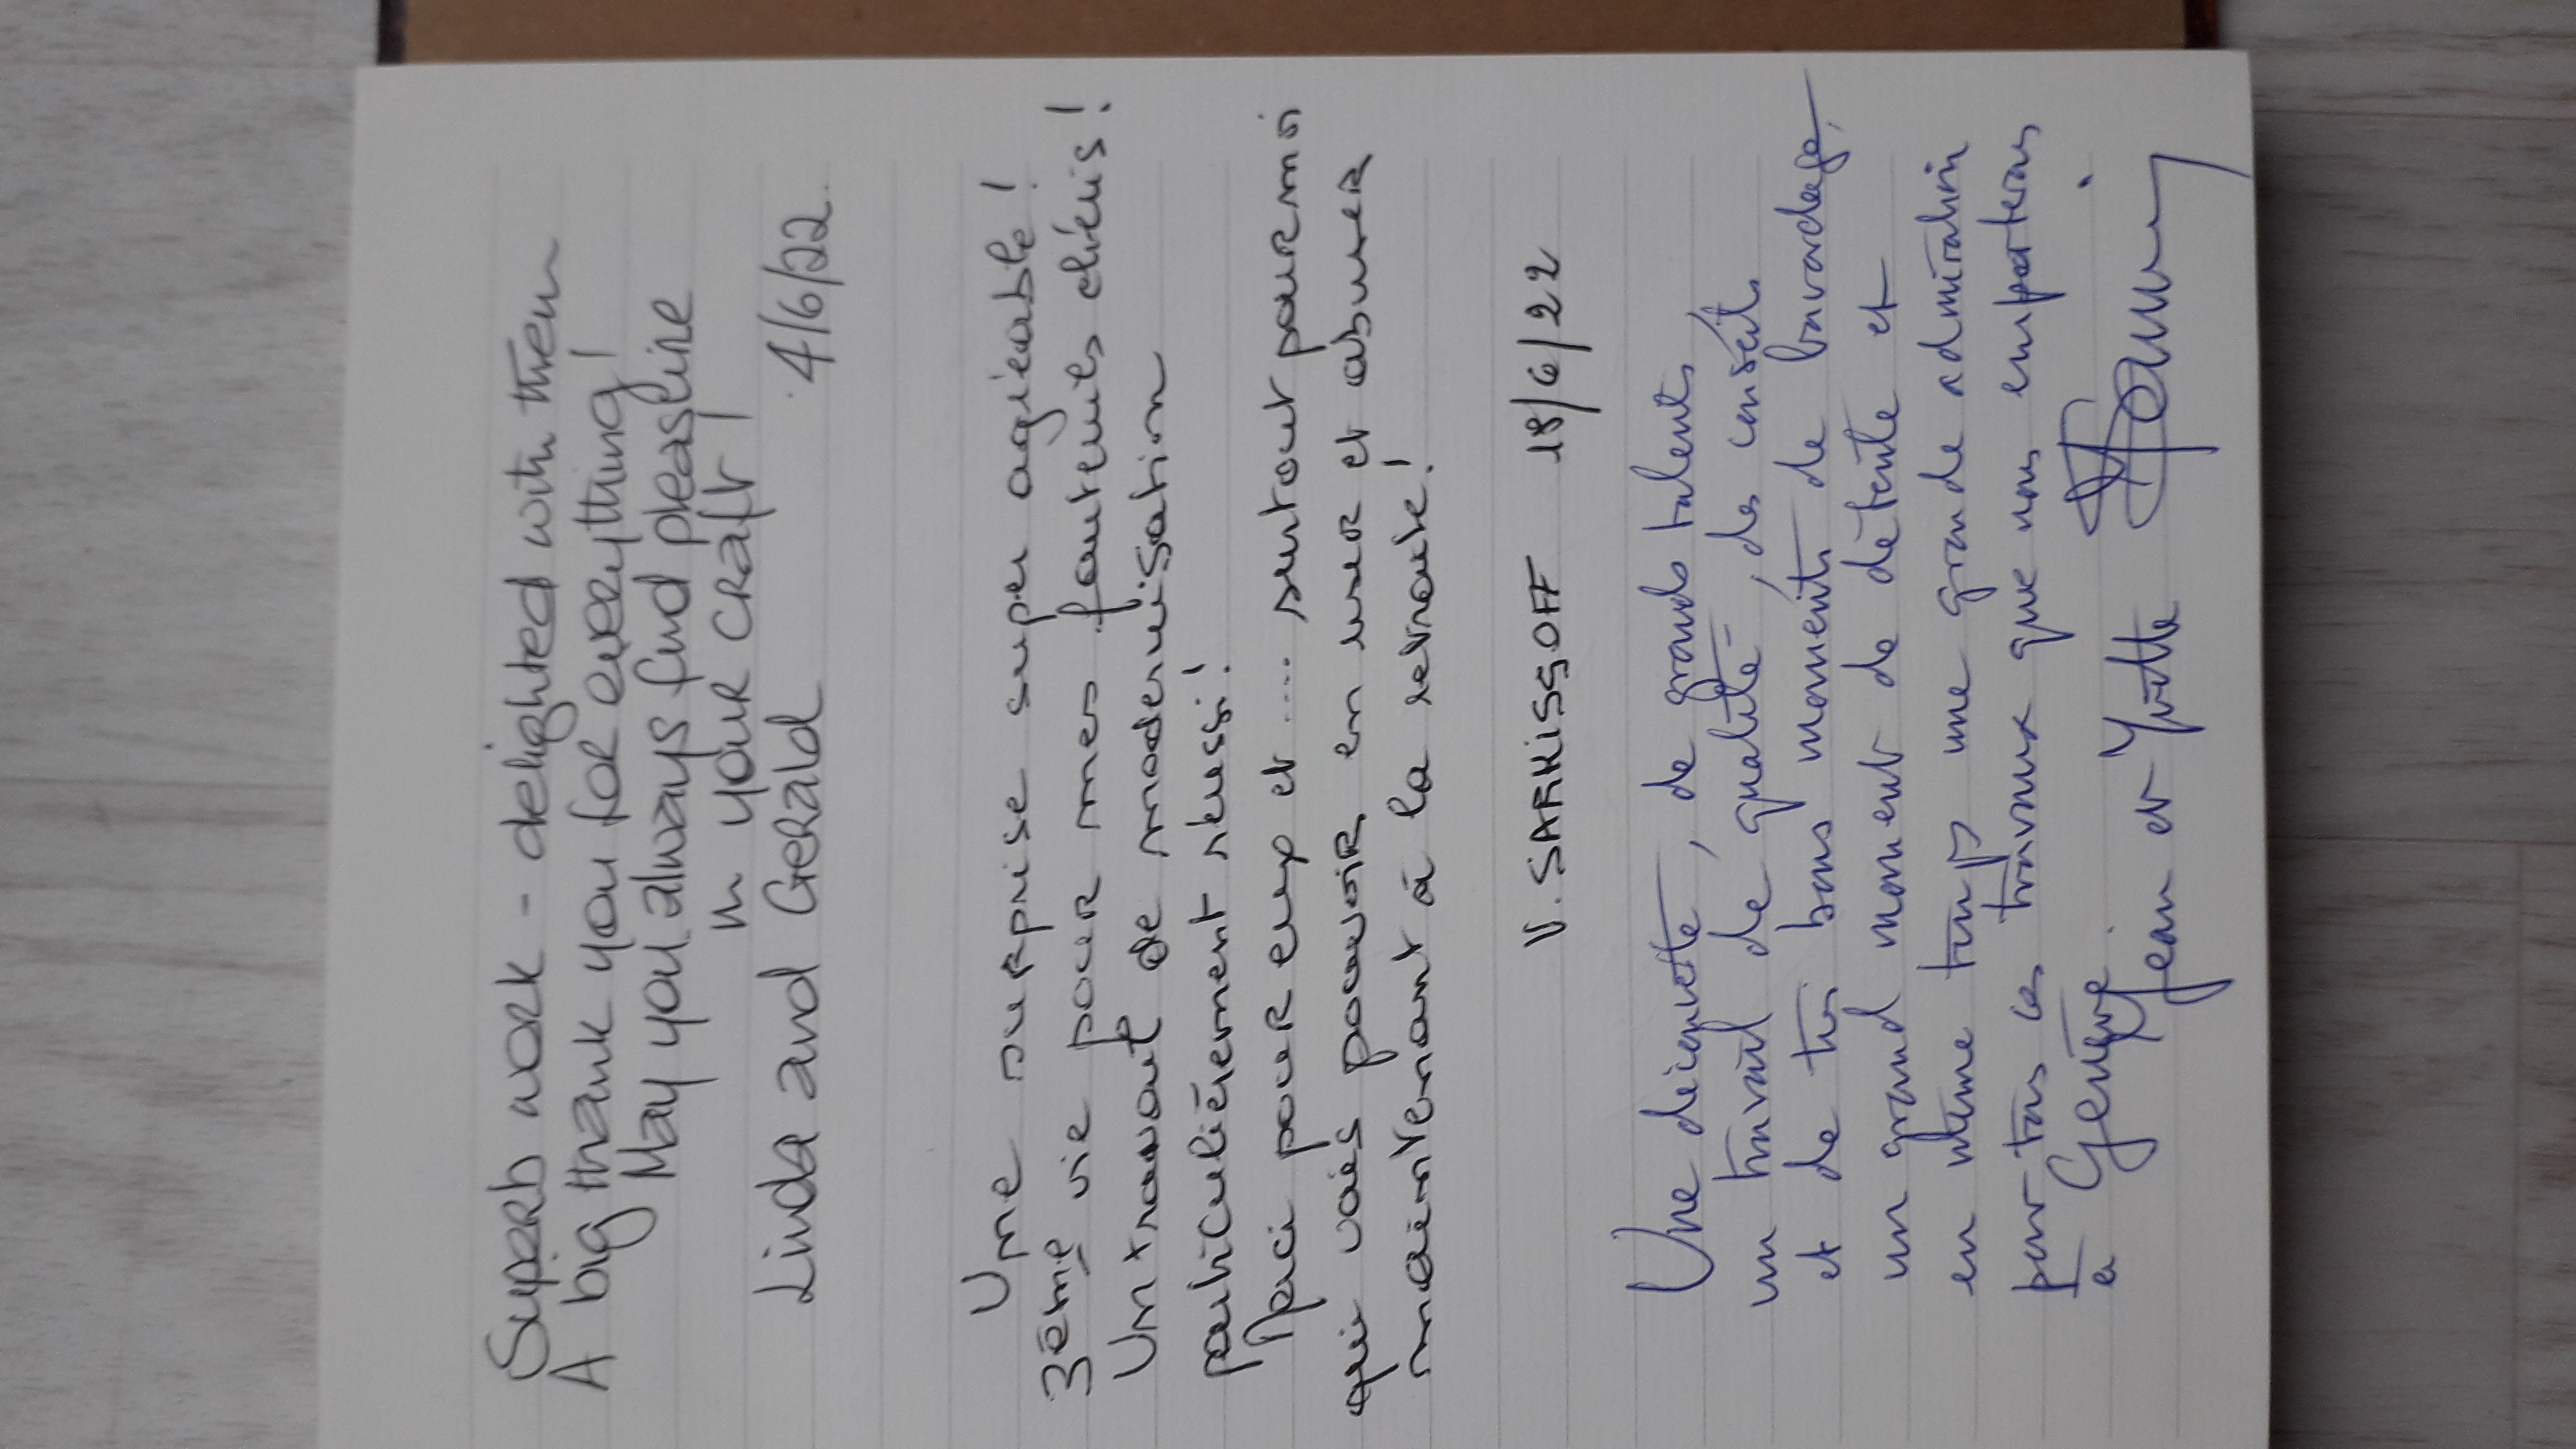 Superb work - delighted with them
A big thank you for everything!
May you always find pleasure
in your craft!
Linda and Gerald 4/6/22.
Une surprise super agréable!
3ème vie pour mes fauteuils chéris!
Un travail de modernisation
particulièrement réussi!
Merci pour eux et .... surtout pour moi
qui vais pouvoir en user et abuser
maintenant à la retraite!
V. SARKISSOFF 18/6/22
Une découverte, de grands talents,
un travail de qualité, des conseils
et de très bons moments de bavardage,
un grand moment de détente et
en même temps une grande admiration
pour tous ces travaux que nous emporterons
à Genève.
Jean et Yvette